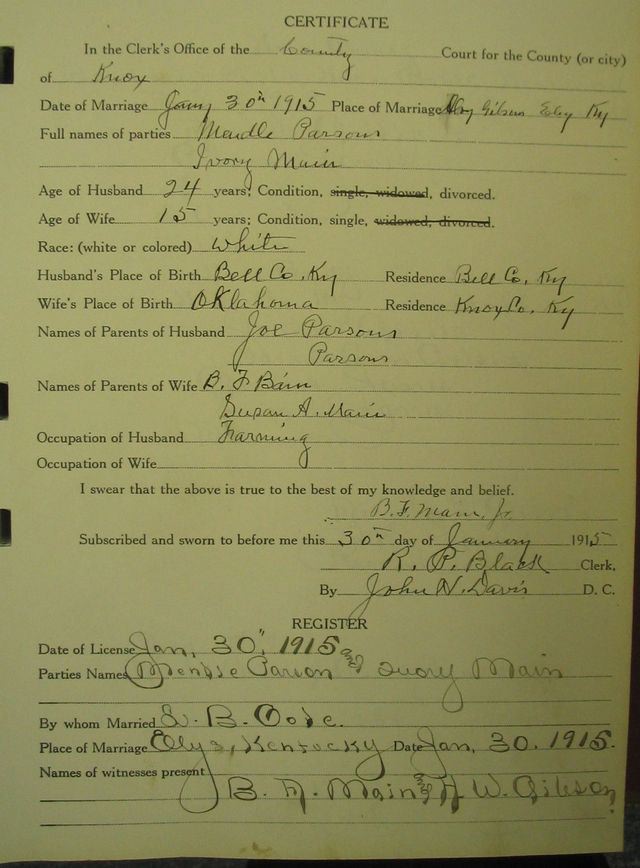 CERTIFICATE
In the Clerk's Office of the County Court for the County (or city)
of Knox
Date of Marriage Jany 30th 1915 Place of Marriage Gibson Ely Ky
Full names of parties Mendle Parsons
Ivory Main
Age of Husband 24 years; Condition, single, widowed, divorced.
Age of Wife 15 years; Condition, single, widowed, divorced.
Race: (white or colored) White
Husband's Place of Birth Bell Co, Ky Residence Bell Co, Ky
Wife's Place of Birth Oklahoma Residence Knox Co, Ky
Names of Parents of Husband Joe Parsons
Parsons
Names of Parents of Wife B. F.
Susan A. Main
Occupation of Husband Farming
Occupation of Wife
I swear that the above is true to the best of my knowledge and belief.
B. F. Main, Jr
Subscribed and sworn to before me this 30th day of January 1915
R. P. Black Clerk.
By John N. Davis D. C.
REGISTER
Date of License Jan, 30, 1915
Parties Names Parson and Ivory Main
By whom Married B. Cole.
Place of Marriage Elys, Kentucky Date Jan, 30. 1915.
Names of witnesses present
B. Main and W. Gibson